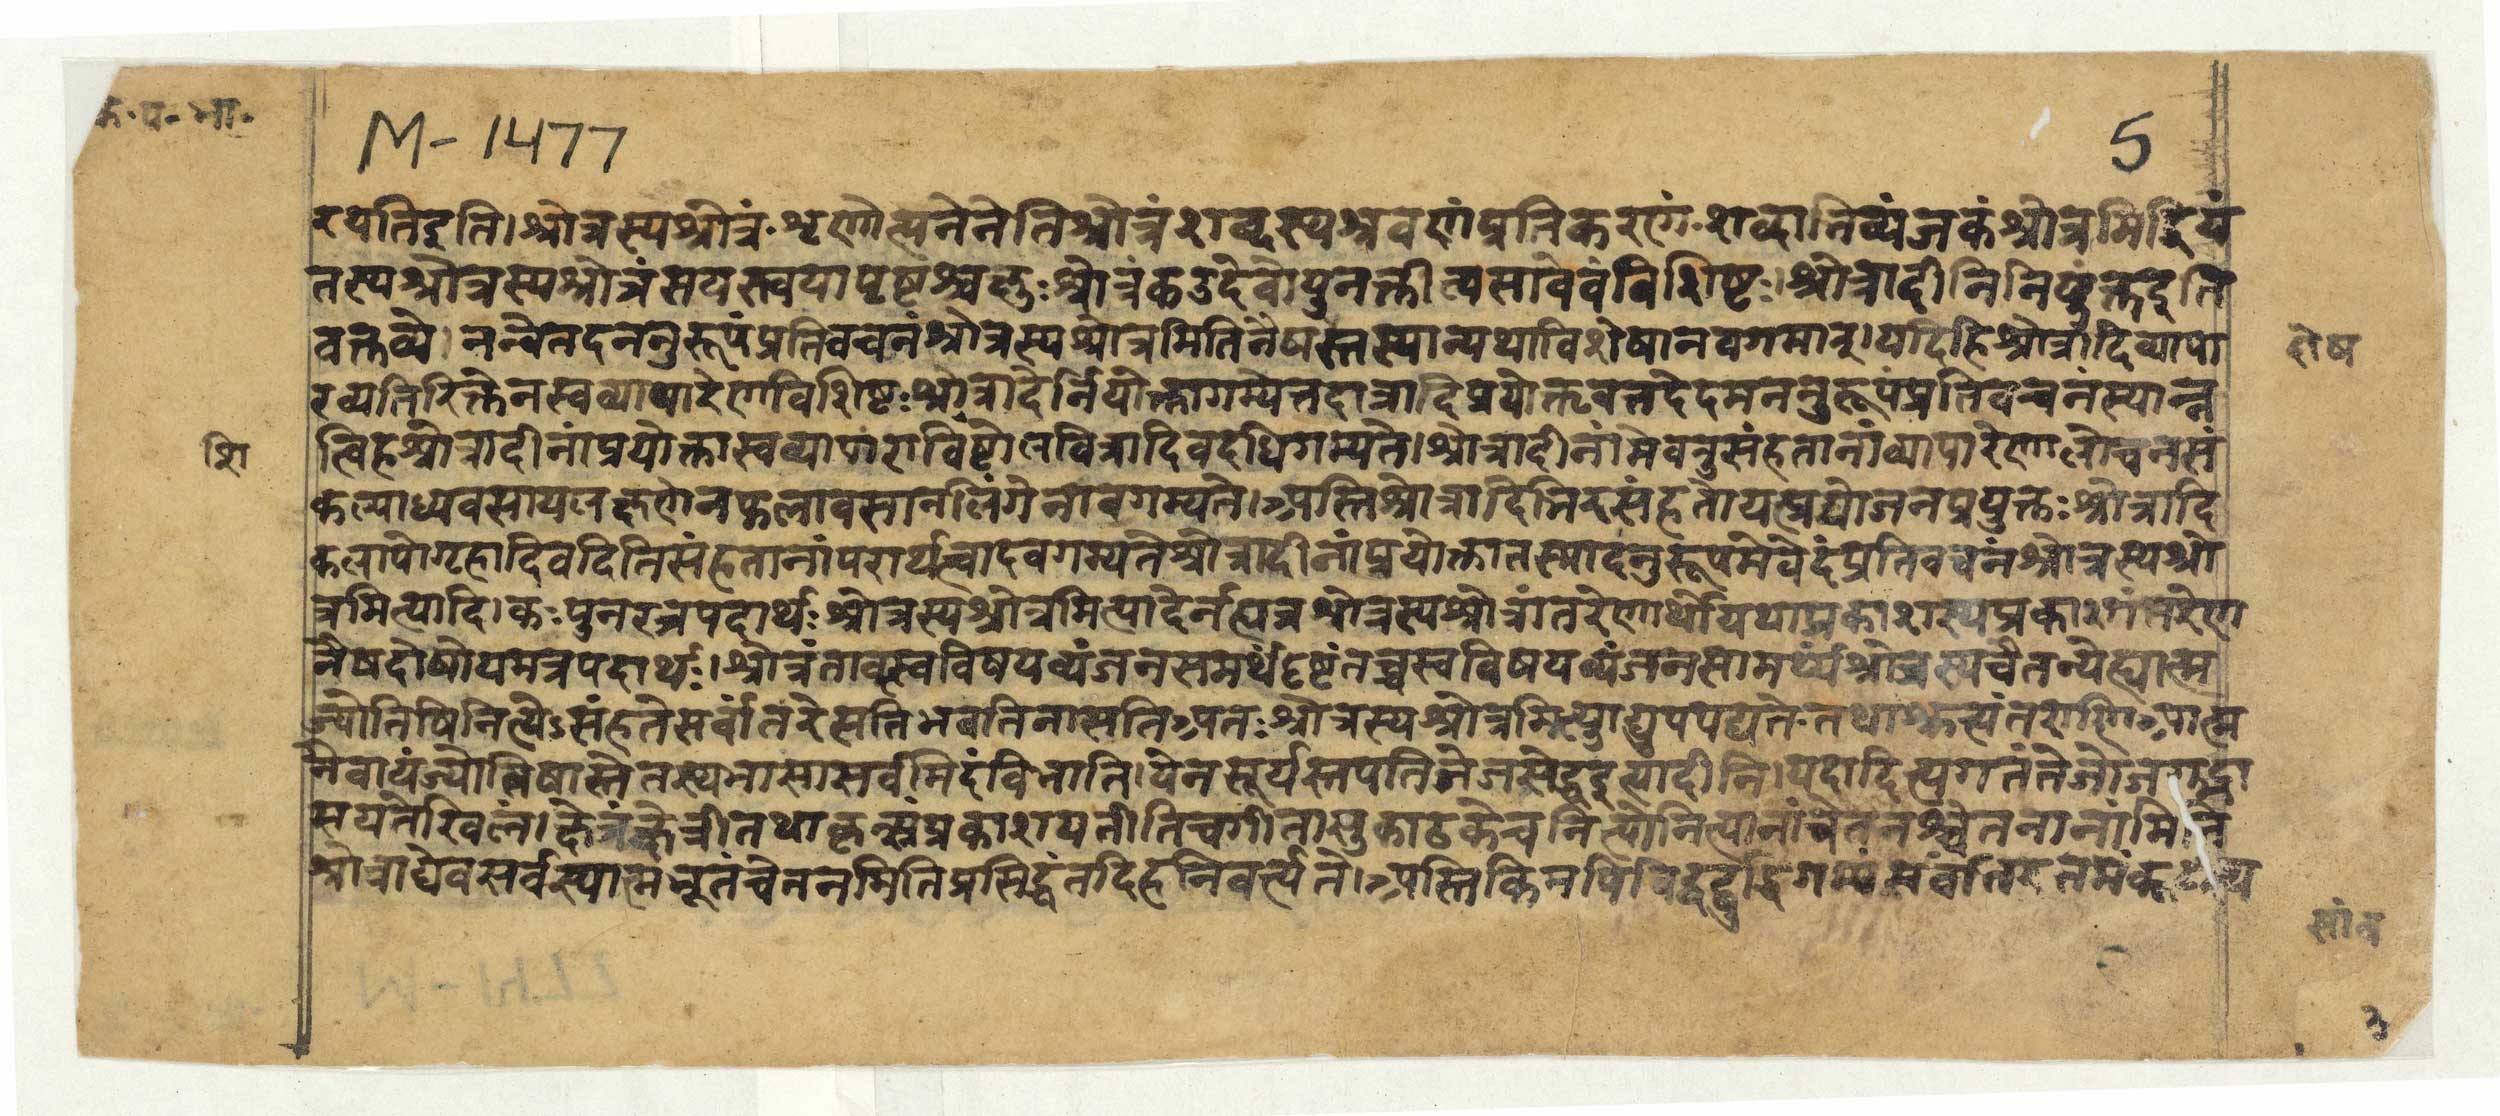 के. प. भा.
M-1477
5
रयतिइति।श्रोत्रस्यश्रोत्रं.शृणोत्यनेनेतिश्रोत्रंशब्दस्यश्रवणंप्रतिकरणं.शब्दाभिव्यंजकंश्रोत्रमिंद्रियं
तस्यश्रोत्रस्यश्रोत्रंसयस्त्वयापृष्टश्चक्षुःश्रोत्रंकउदेवोयुनक्तीत्यसावेवंविशिष्टः।श्रोत्रादीनिनियुंक्तइति
वक्तव्ये।नन्वेतदननुरूपंप्रतिवचनंश्रोत्रस्यश्रोत्रमितिनैषस्तस्यान्यथाविशेषानवगमात्।यदिहिश्रोत्रादिव्यापा
शेष
रव्यतिरिक्तेनस्वव्यापारेणविशिष्टःश्रोत्रादेर्नियोक्तागम्येत्तदात्रादिप्रयोक्तृवत्तदेदमननुरूपंप्रतिवचनंस्यान्न
त्विहश्रोत्रादीनांप्रयोक्तास्वव्यापाराविष्टोलवित्रादिवदधिगम्यते।श्रोत्रादीनांमेवतुसंहतानांव्यापारेणालोचनसं
शि
कल्पाध्यवसायलक्षणेनफलावसानलिंगेनावगम्यते।अस्तिश्रोत्रादिभिरसंहतोयत्प्रयोजनप्रयुक्तःश्रोत्रादि
कलापोगृहादिवदितिसंहतानांपरार्थत्वादवगम्यतेश्रोत्रादीनांप्रयोक्तातस्मादनुरूपमेवेदंप्रतिवचनंश्रोत्रस्यश्रो
त्रमित्यादि।कःपुनरत्रपदार्थःश्रोत्रस्यश्रोत्रमित्यादेर्नह्यत्रश्रोत्रस्यश्रोत्रांतरेणार्थोयथाप्रकाशस्यप्रकाशांतरेण
नैषदोषोयमत्रपदार्थः।श्रोत्रंतावत्स्वविषयव्यंजनसमर्थंदृष्टंतच्चस्वविषयव्यंजनसामर्थ्यंश्रोत्रस्यचैतन्येह्यात्म
ज्योतिषिनित्येऽसंहतेसर्वांतरेसतिभवतिनासतिअतःश्रोत्रस्यश्रोत्रमित्याद्युपपद्यते.तथाचश्रुत्यंतराणिआत्म
नैवायंज्योतिषास्तेतस्यभासासर्वमिदंविभाति।येनसूर्यस्तपतितेजसेद्धइत्यादीनि।यदादित्यगतंतेजोजगद्भा
सयतेखिलं।क्षेत्रंक्षेत्रीतथाकृत्स्नंप्रकाशयतीतिचगीतासुकाठकेचनित्योनित्यानांचेतनश्चेतनानांमिति
श्रोत्राद्येवसर्वस्यात्मभूतंचेतनमितिप्रसिद्धंतदिहनिवर्त्यते।अस्तिकिमपिविद्वद्बुद्धिगम्यंसर्वांतरतमंकूटस्थ
सांत
३